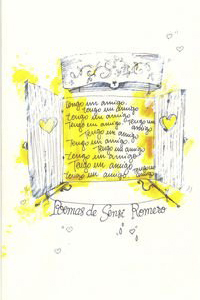 tengo un amigo
tengo un amigo
tengo un amigo
tengo un amigo tengo un amigo
tengo un amigo
tengo un amigo
tengo un amigo
tengo un amigo
tengo un amigo
tengo un amigo
tengo un amigo
Poemas de Gensé Romero